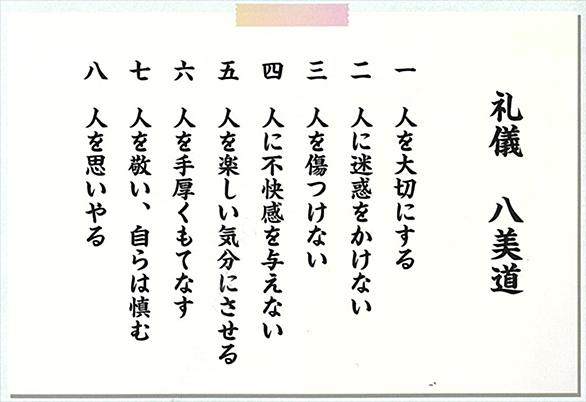 礼儀　八美道
一　人を大切にする
二　人に迷惑をかけない
三　人を傷つけない
四　人に不快感を与えない
五　人を楽しい気分にさせる
六　人を手厚くもてなす
七　人を敬い、自らは慎む
八　人を思いやる